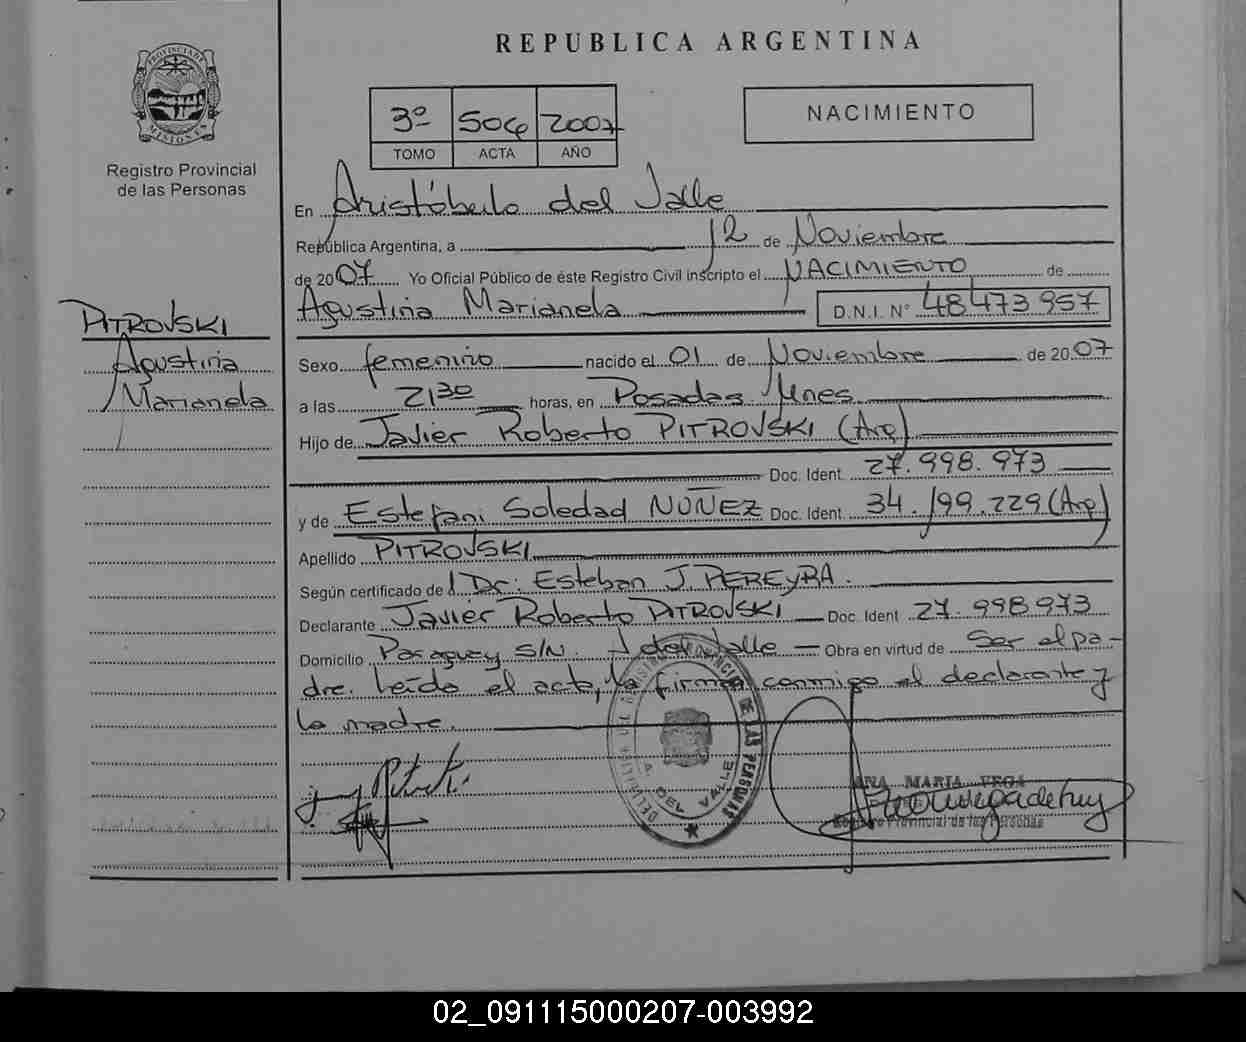 REPUBLICA ARGENTINA
PROVINCIA DE MISIONES
Registro Provincial
de las Personas
3º 506 2007
TOMO ACTA AÑO
NACIMIENTO
En Aristóbulo del Valle
República Argentina, a 12 de Noviembre
de 2007 Yo Oficial Público de éste Registro Civil inscripto el NACIMIENTO de
Agustina Marianela D.N.I. Nº 48.473.957
PITROVSKI
Agustina
Marianela
Sexo femenino nacido el 01 de Noviembre de 2007
a las 2130 horas, en Posadas Mnes.
Hijo de Javier Roberto PITROVSKI (Arg)
Doc. Ident. 27.998.973
y de Estefani Soledad NÚÑEZ Doc. Ident. 34.199.229 (Arg)
Apellido PITROVSKI
Según certificado de Dr: Esteban J. PEREYRA.
Declarante Javier Roberto PITROVSKI Doc. Ident 27.998973
Domicilio Paraguay S/N. A del Valle Obra en virtud de Ser el pa-
dre. Leída el acta, la firman conmigo el declarante y
la madre.
DE LAS PERSONAS
A. DEL VALLE
ANA MARIA VEGA
Registro Provincial de las Personas
02_091115000207-003992